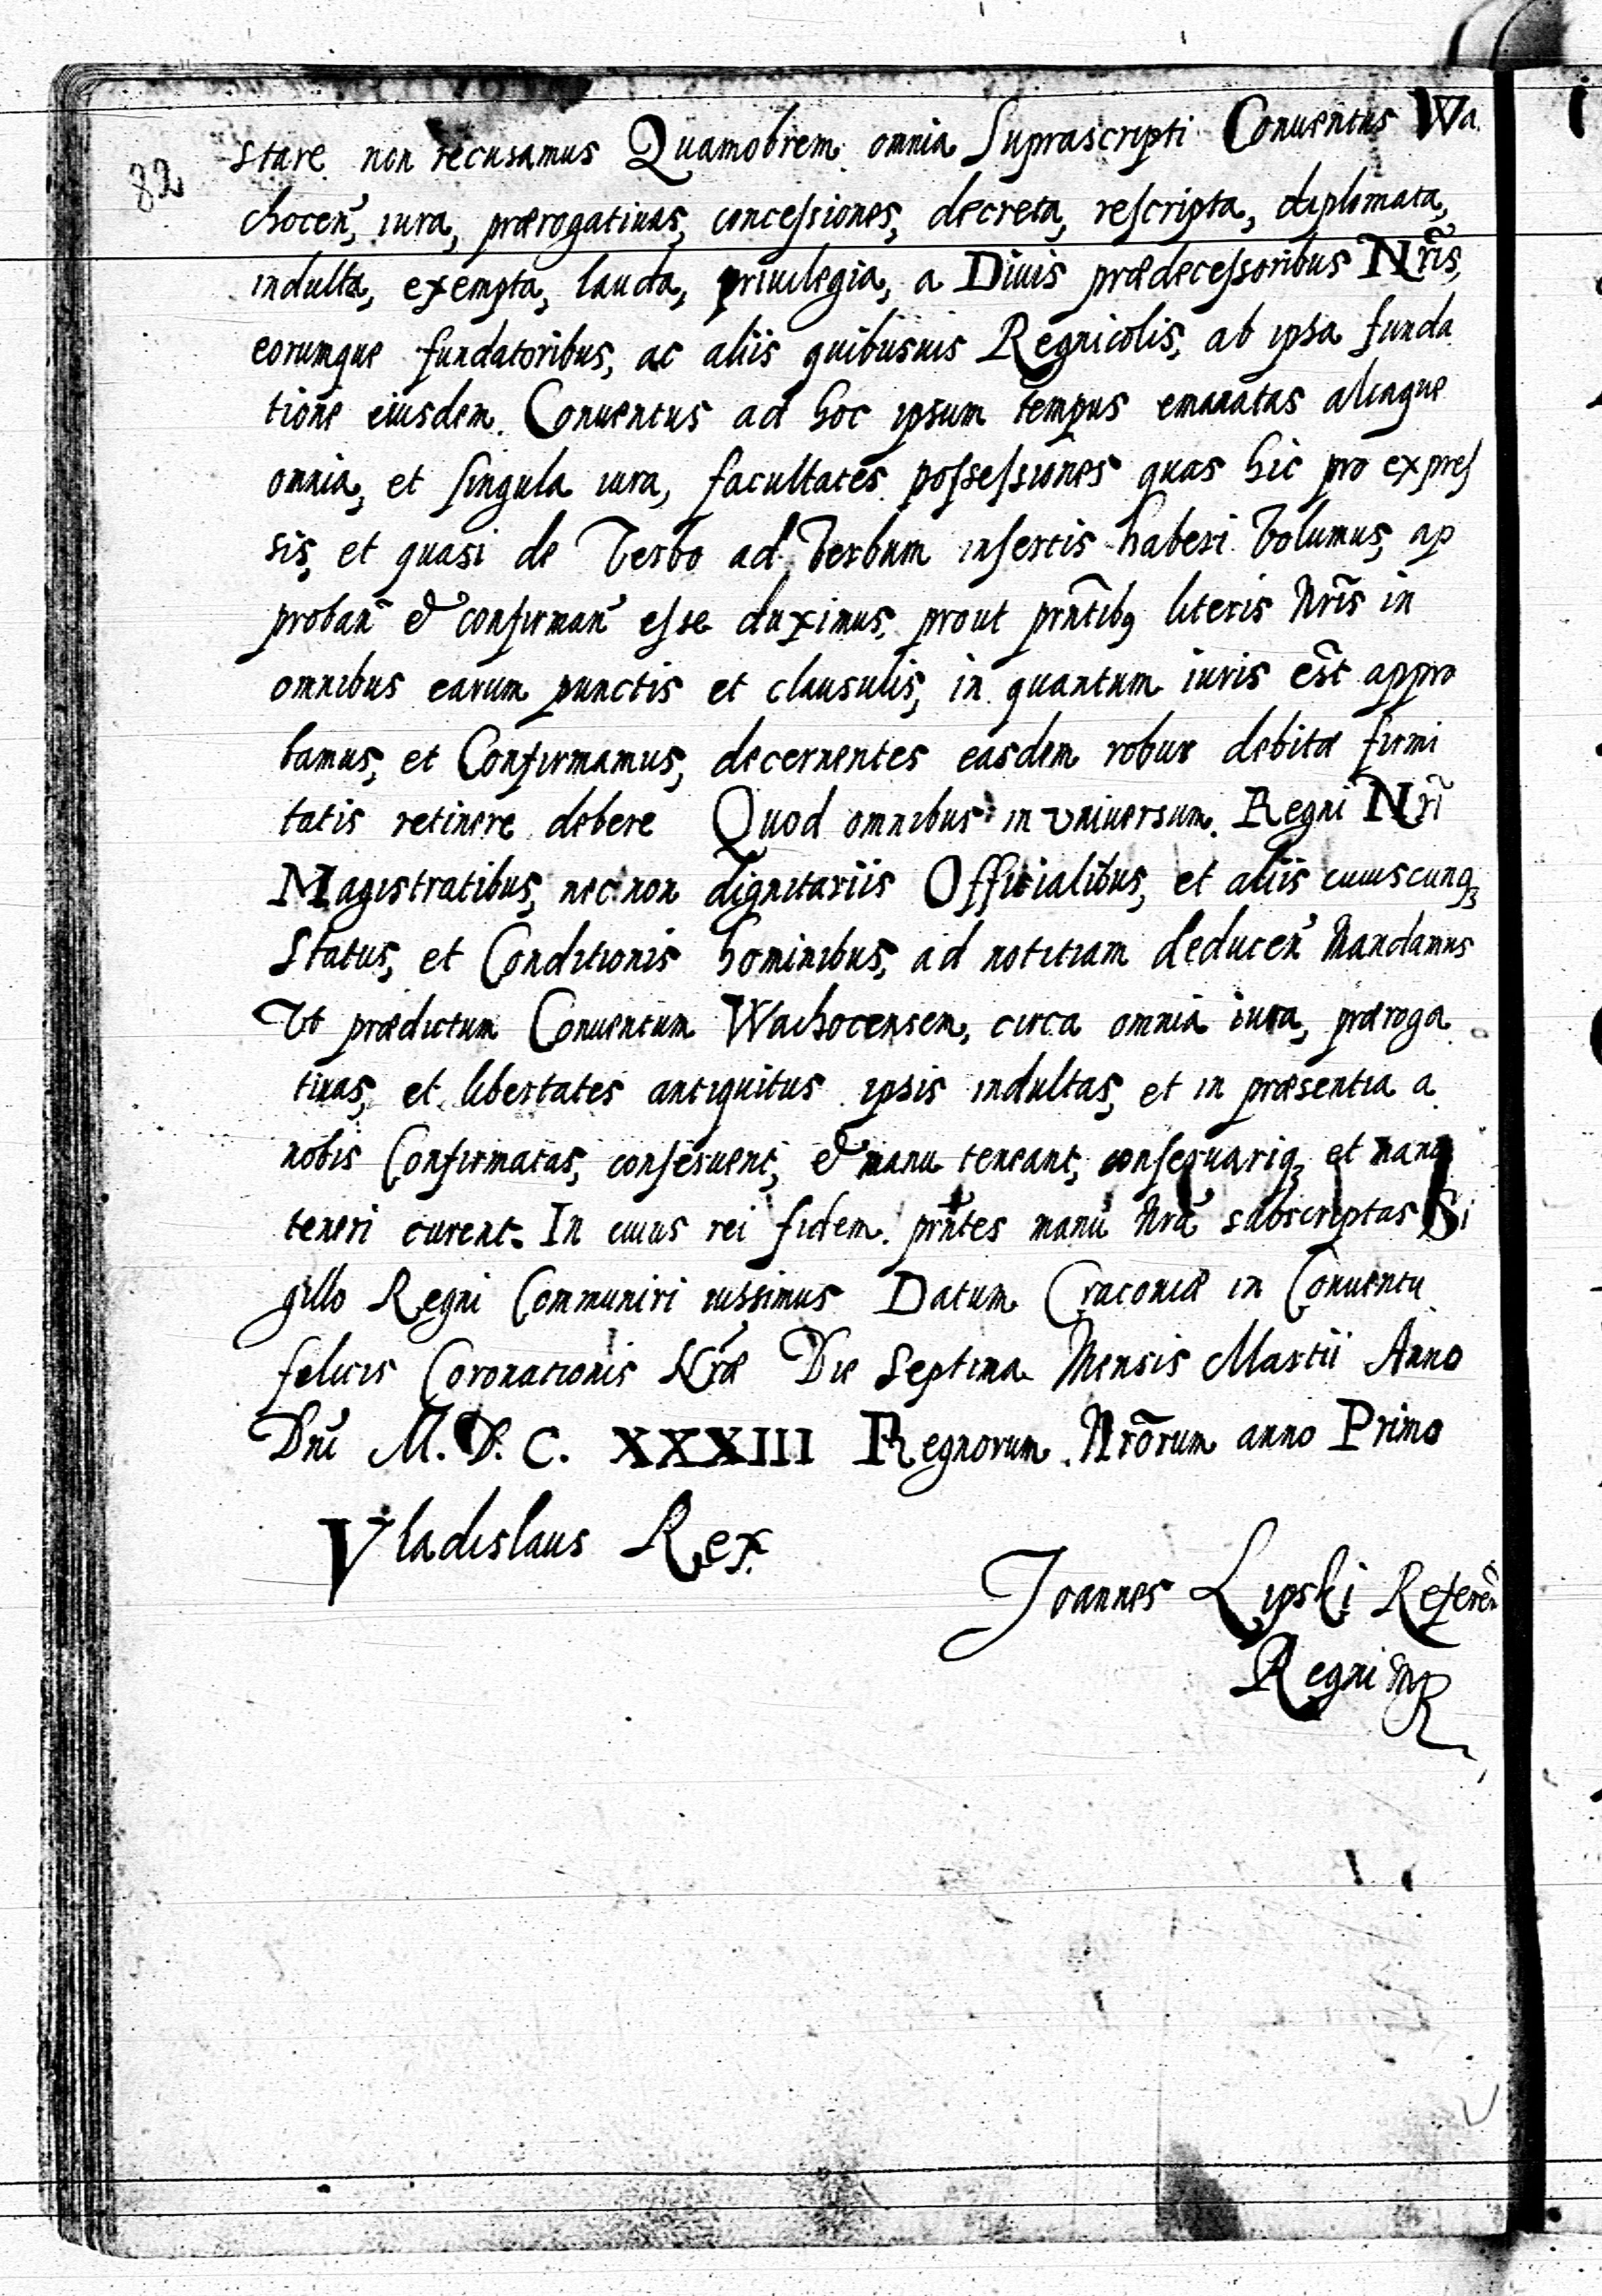 82
stare non recusamus Quamobrem omnia Suprascripti Conuentus Wa
chocen̄, iura, prærogatiuas, concessiones, decreta, rescripta, diplomata,
indulta, exempta, lauda, priuilegia, a Diuis prædecessoribus Nr̃is,
eorumque fundatoribus, ac aliis quibusuis Regnicolis, ab ipsa funda
tione eiusdem Conuentus ad hoc ipsum tempus emanatas aliaque
omnia, et singula iura, facultates possessiones quas hic pro expres
sis, et quasi de Verbo ad Verbum insertis haberi Volumus, ap
proban̄ & confirman̄ esse duximus, prout prñtibꝫ literis Nr̃is in
omnibus earum punctis et clausulis, in quantum iuris es̃t appro
bamus, et Confirmamus, decernentes easdem robur debitæ firmi
tatis retinere debere Quod omnibus in vniuersum Regni Nr̃i
Magistratibus, nec non dignitariis Officialibus, et aliis cuiuscunqꝫ
Status, et Conditionis hominibus, ad notitiam deducen̄ Mandamus
Vt prædictum Conuentum Wachocensem, circa omnia iura, præroga
tiuas, et libertates antiquitus ipsis indultas, et in præsentia a
nobis Confirmatas, conseruent, & manu teneant, conseruariqꝫ et manu
teneri curent. In cuius rei fidem prñtes manu Nr̃a subscriptas Si
gillo Regni Communiri iussimus Datum Cracouiæ in Conuentu
felicis Coronationis Nr̃æ Die Septima Mensis Martii Anno
Dñi M. D. C. XXXIII Regnorum Nr̃orum anno Primo
Vladislaus Rex
Joannes Lipski Referen̄
Regni